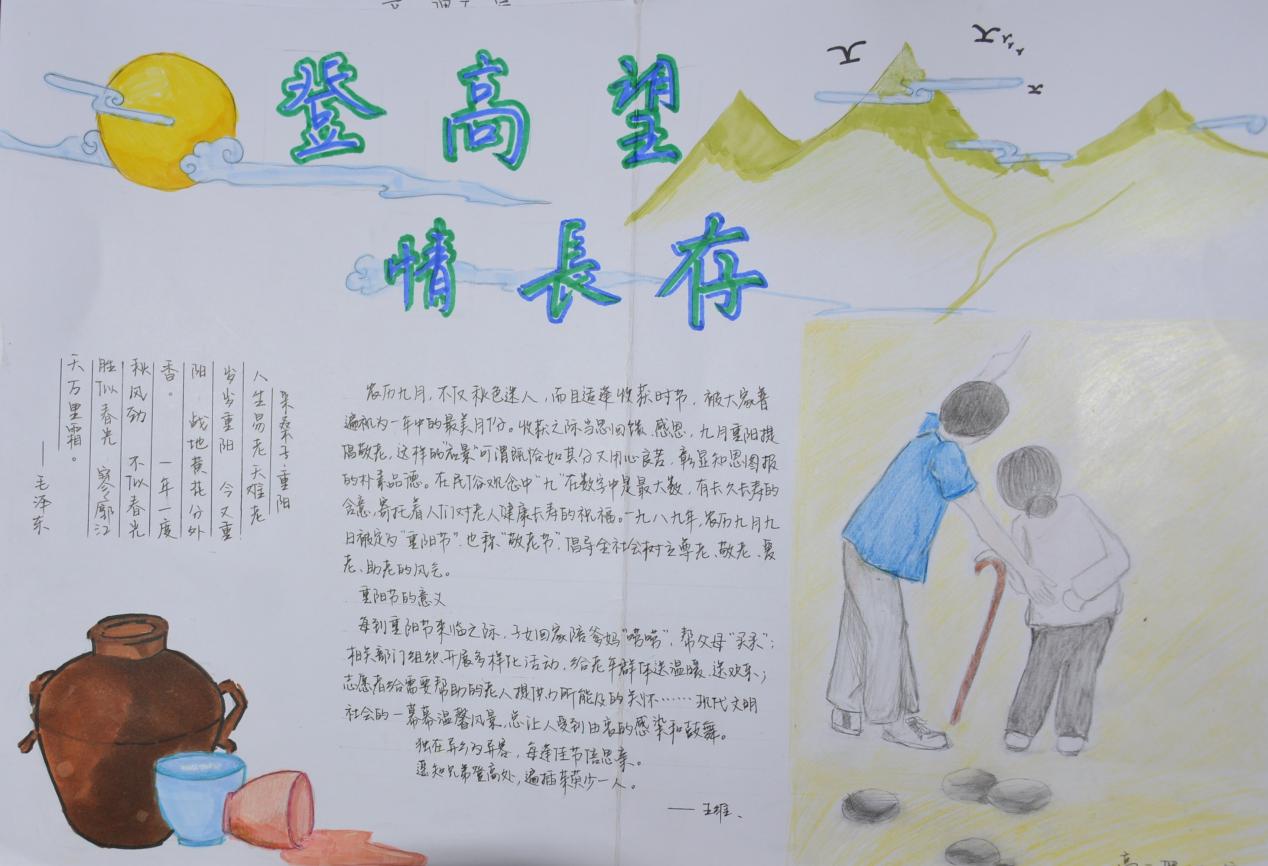 登高望
情長存
采桑子·重阳
人生易老天难老
岁岁重阳 今又重
阳 战地黄花分外
香。 一年一度
秋风劲 不似春光
胜似春光 寥廓江
天万里霜。
——毛泽东
农历九月，不仅秋色迷人，而且适逢收获时节，被大家普
遍视为一年中的最美月份。收获之际当思回馈、感恩，九月重阳提
倡敬老，这样的"布景"可谓既恰如其分又用心良苦，彰显知恩图报
的朴素品德。在民俗观念中"九"在数字中是最大数，有长久长寿的
含意，寄托着人们对老人健康长寿的祝福。一九八九年，农历九月九
日被定为"重阳节"，也称"敬老节"，倡导全社会树立尊老、敬老、爱
老、助老的风气。
重阳节的意义
每到重阳节来临之际，子女回家陪爸妈"唠唠"，帮父母"买买"；
相关部门组织开展多样化活动，给老年群体送温暖、送欢乐；
志愿者给需要帮助的老人提供力所能及的关怀……现代文明
社会的一幕幕温馨风景，总让人受到由衷的感染和鼓舞。
独在异乡为异客，每逢佳节倍思亲。
遥知兄弟登高处，遍插茱萸少一人。
——王维、
高